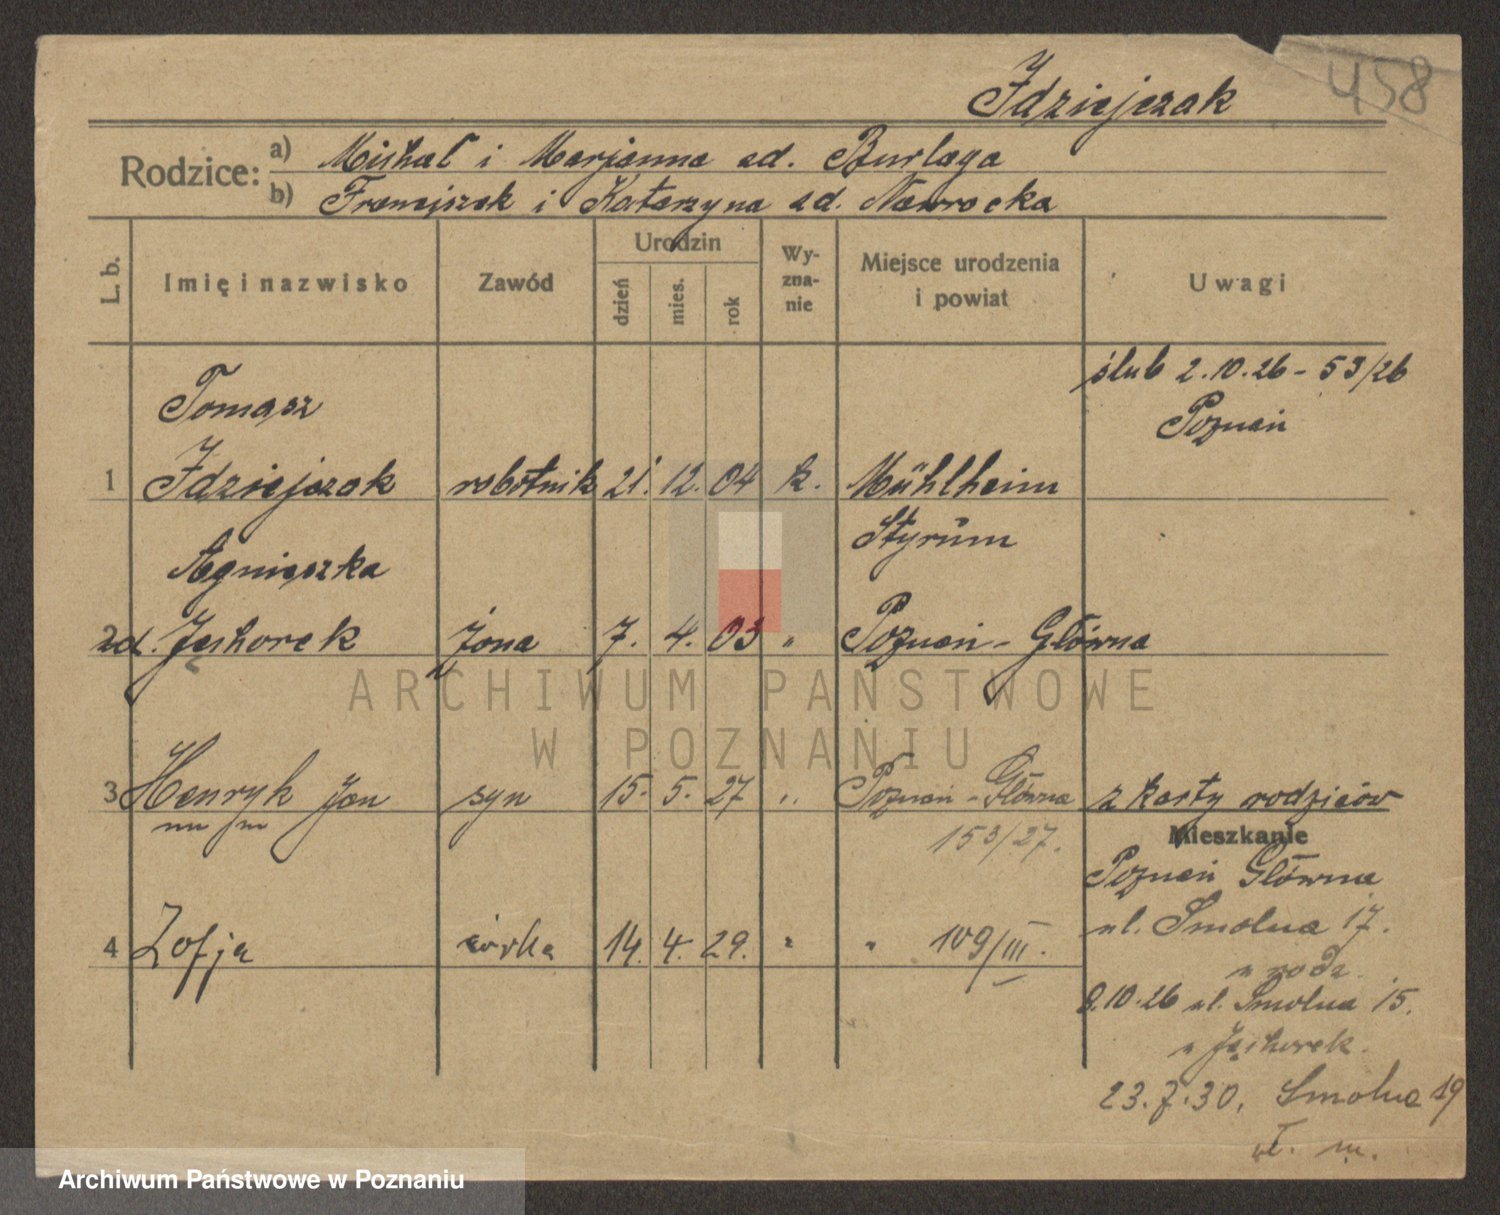 458
Idziejczak
Rodzice: a) Michał i Marjanna zd. Burlaga
b) Franciszek i Katarzyna zd. Nawrocka
L. b. Imię i nazwisko Zawód Urodzin dzień mies. rok Wyznanie Miejsce urodzenia i powiat Uwagi
ślub 2.10.26 - 53/26
Tomasz Poznań
1 Idziejczak robotnik 21. 12. 04 k. Mühlheim
Styrum
Agnieszka
2 zd. Jęchorek żona 7. 4. 03 " Poznań - Główna
3 Henryk Jan syn 15. 5. 27 " Poznań - Główna z karty rodziców
153/27.
Mieszkanie
Poznań Główna
ul. Smolna 17.
4 Zofja córka 14. 4. 29. " " 109/III.
u rodz.
8.10.26 ul. Smolna 15.
u Jęchorek.
23.7.30. Smolna 19
wł. m.
ARCHIWUM PAŃSTWOWE
W POZNANIU
Archiwum Państwowe w Poznaniu